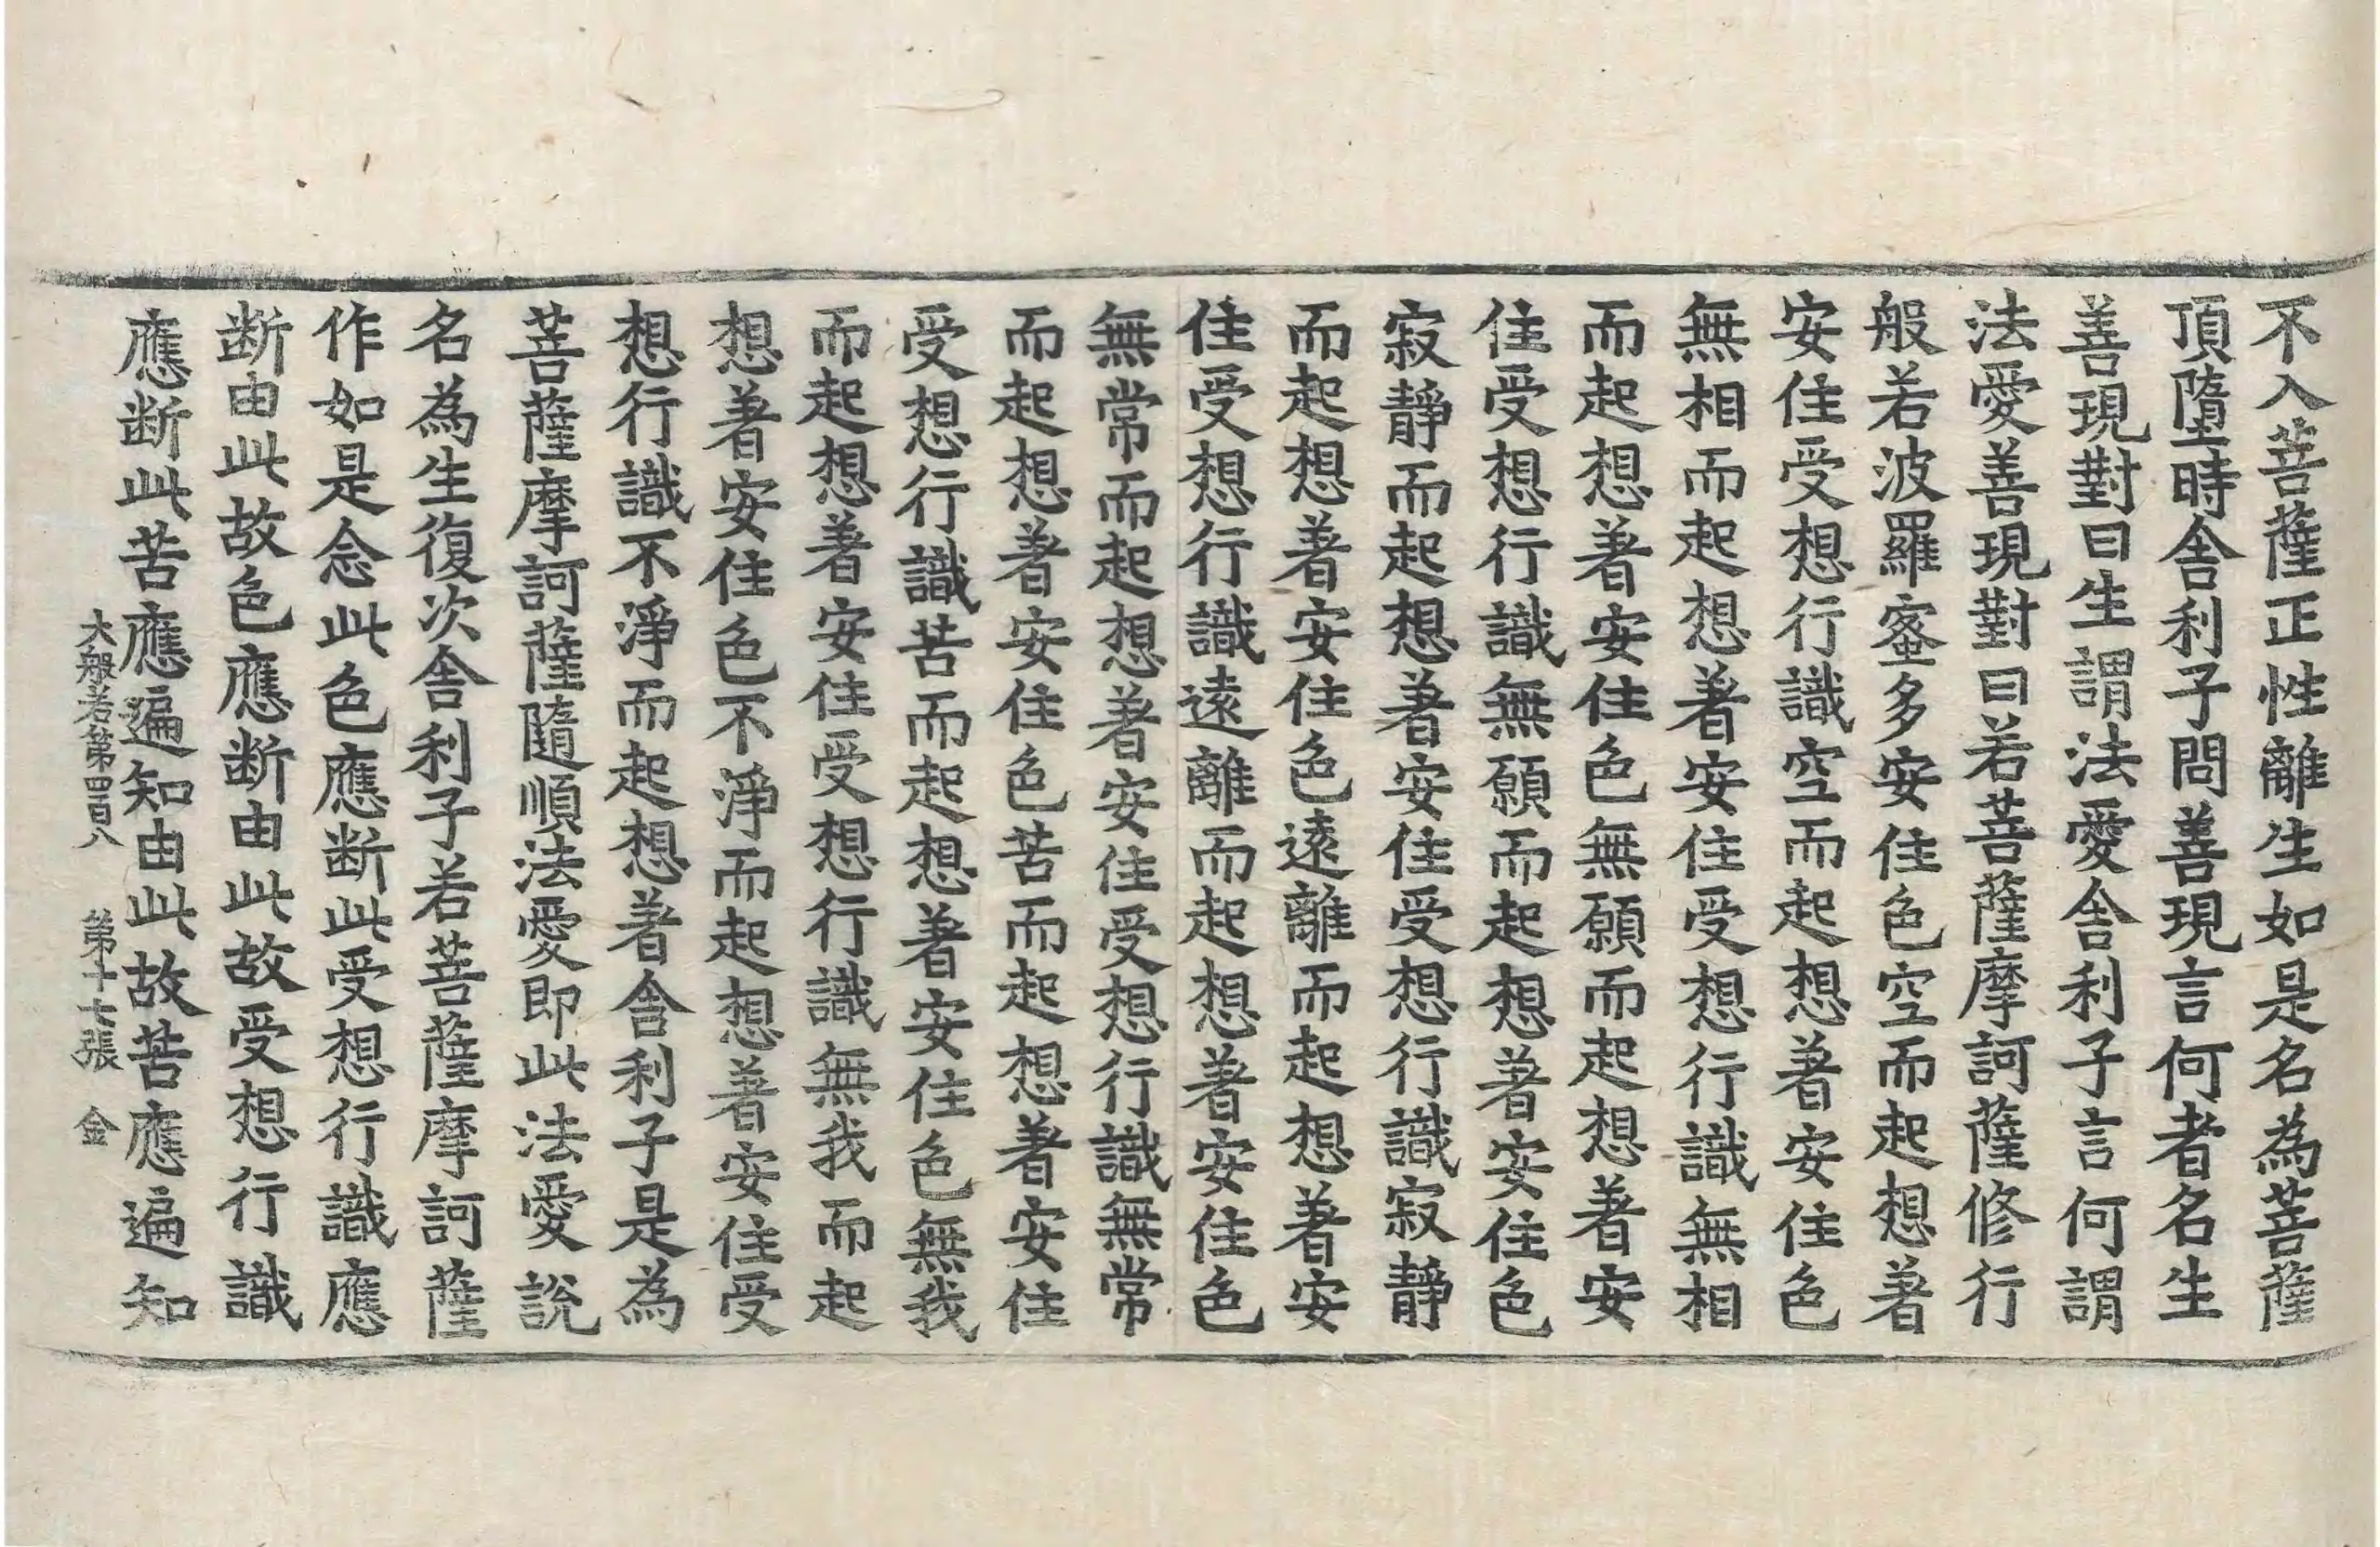 不入菩薩正性離生如是名為菩薩
頂墮時舍利子問善現言何者名生
善現對曰生謂法愛舍利子言何謂
法愛善現對曰若菩薩摩訶薩修行
般若波羅蜜多安住色空而起想著
安住受想行識空而起想著安住色
無相而起想著安住受想行識無相
而起想著安住色無願而起想著安
住受想行識無願而起想著安住色
寂靜而起想著安住受想行識寂靜
而起想著安住色遠離而起想著安
住受想行識遠離而起想著安住色
無常而起想著安住受想行識無常
而起想著安住色苦而起想著安住
受想行識苦而起想著安住色無我
而起想著安住受想行識無我而起
想著安住色不淨而起想著安住受
想行識不淨而起想著舍利子是為
菩薩摩訶薩隨順法愛即此法愛說
名為生復次舍利子若菩薩摩訶薩
作如是念此色應断此受想行識應
断由此故色應断由此故受想行識
應断此苦應遍知由此故苦應遍知
大般若第四百八　第十七張　金